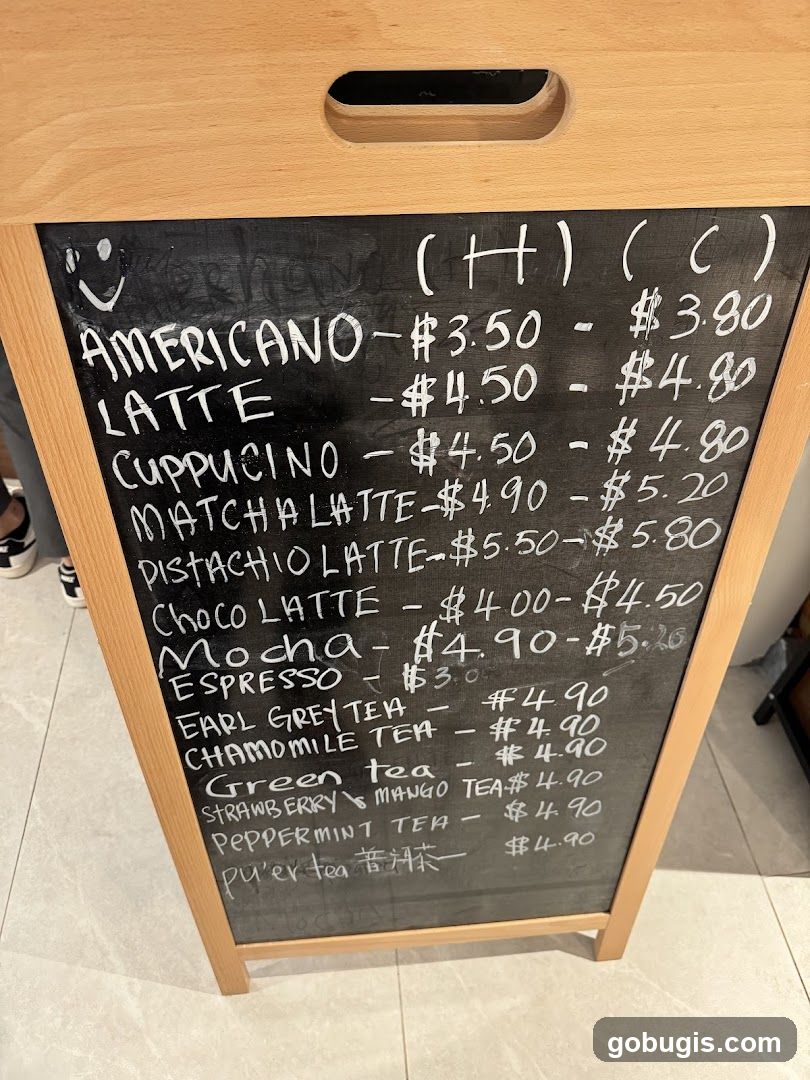 (H) (C)
AMERICANO - $3.50 - $3.80
LATTE - $4.50 - $4.80
CUPPUCINO - $4.50 - $4.80
MATCHA LATTE - $4.90 - $5.20
PISTACHIO LATTE - $5.50 - $5.80
CHOCO LATTE - $4.00 - $4.50
Mocha - $4.90 - $5.20
ESPRESSO - $3.0
EARL GREY TEA - $4.90
CHAMOMILE TEA - $4.90
Green tea - $4.90
STRAWBERRY & MANGO TEA - $4.90
PEPPERMINT TEA - $4.90
pu'er tea 普洱茶 - $4.90
gobugis.com